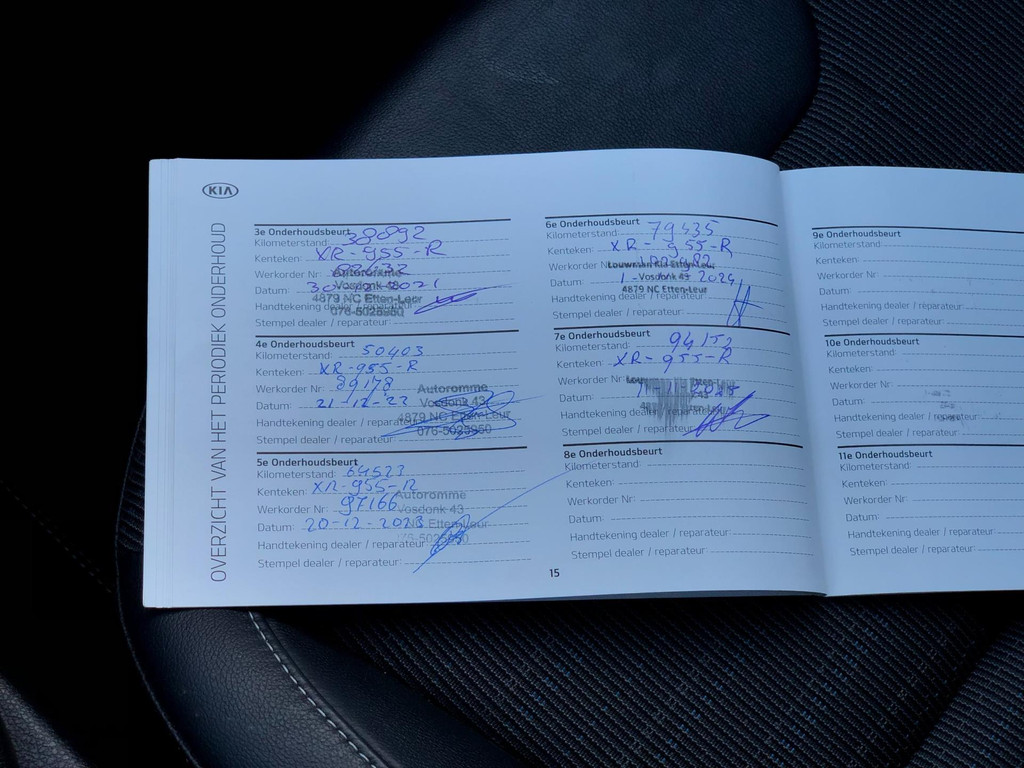 KIA
OVERZICHT VAN HET PERIODIEK ONDERHOUD
3e Onderhoudsbeurt
Kilometerstand: 38892
Kenteken: XR-955-R
Werkorder Nr:
Autoromme
Datum: 30-12-2021
Vosdonk 43
Handtekening dealer / reparateur:
4879 NC Etten-Leur
076-5025950
Stempel dealer / reparateur:
4e Onderhoudsbeurt
Kilometerstand: 50403
Kenteken: XR-955-R
Werkorder Nr: 89178
Autoromme
Datum: 21-12-22
Vosdonk 43
Handtekening dealer / reparateur:
4879 NC Etten-Leur
076-5025950
Stempel dealer / reparateur:
5e Onderhoudsbeurt
Kilometerstand: 64523
Kenteken: XR-955-R
Werkorder Nr: 97166
Autoromme
Vosdonk 43
Datum: 20-12-2023
Etten-Leur
Handtekening dealer / reparateur:
Stempel dealer / reparateur:
6e Onderhoudsbeurt
Kilometerstand: 79435
Kenteken: XR-955-R
Werkorder Nr:
Louwman Kia Etten-Leur
Datum: 2024
Vosdonk 43
4879 NC Etten-Leur
Handtekening dealer / reparateur:
Stempel dealer / reparateur:
7e Onderhoudsbeurt
Kilometerstand: 94152
Kenteken: XR-955-R
Werkorder Nr:
Datum:
Handtekening dealer / reparateur:
Stempel dealer / reparateur:
8e Onderhoudsbeurt
Kilometerstand:
Kenteken:
Werkorder Nr:
Datum:
Handtekening dealer / reparateur:
Stempel dealer / reparateur:
15
9e Onderhoudsbeurt
Kilometerstand:
Kenteken:
Werkorder Nr:
Datum:
Handtekening dealer / reparateur:
Stempel dealer / reparateur:
10e Onderhoudsbeurt
Kilometerstand:
Kenteken:
Werkorder Nr:
Datum:
Handtekening dealer / reparateur:
Stempel dealer / reparateur:
11e Onderhoudsbeurt
Kilometerstand:
Kenteken:
Werkorder Nr:
Datum:
Handtekening dealer / reparateur:
Stempel dealer / reparateur: